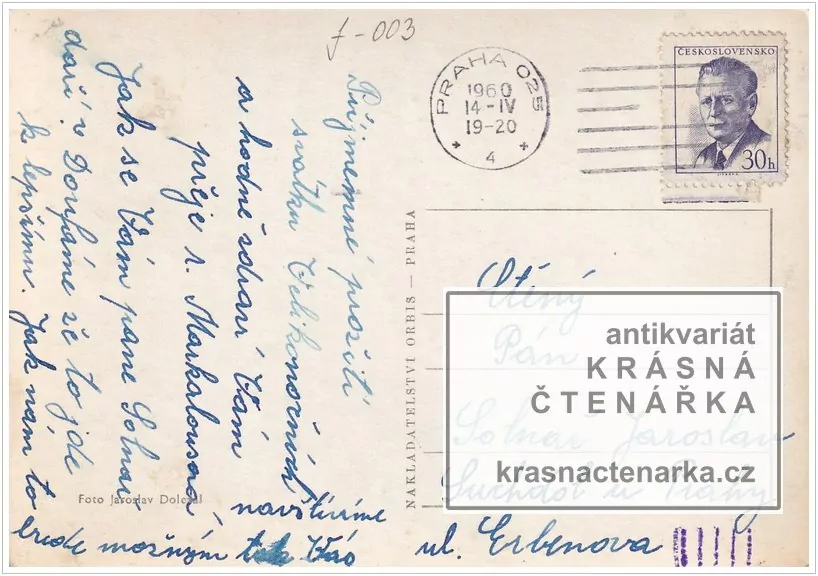 f-003
PRAHA 025
1960
14-IV
19-20
4
ČESKOSLOVENSKO
30h
Příjemné prožití
svátků Velikonočních
a hodně zdraví Vám
přeje r. Markalousová
Jak se Vám pane Solnař
daří? Doufáme že to jde
k lepšímu. Jak nám to
bude možným tak Vás
navštívíme
Foto Jaroslav Doležal
NAKLADATELSTVÍ ORBIS — PRAHA
Ctěný
Pán
Solnař Jaroslav
Suchdol u Prahy
ul. Erbenova
antikvariát
KRÁSNÁ
ČTENÁŘKA
krasnactenarka.cz